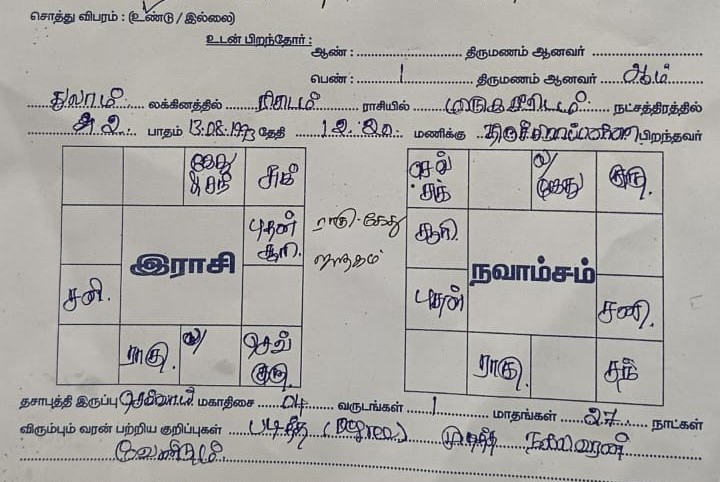 சொத்து விபரம் : (உண்டு / இல்லை)
உடன் பிறந்தோர் :
ஆண் : திருமணம் ஆனவர்
பெண் : 1 திருமணம் ஆனவர் ஆம்
துலாம் லக்கினத்தில் ரிடைம் ராசியில் மிருகசீரிடம் நட்சத்திரத்தில்
2 பாதம் 13.08.1993 தேதி 12.20 மணிக்கு திருச்சிராப்பள்ளி பிறந்தவர்
கேது சந் சுக்
புதன் சூரி.
சனி.
ராகு. ல/ செவ் குரு
இராசி
ராகு-கேது
ஜாதகம்
செவ் சுக் ல/ கேது குரு.
சூரி.
புதன் சனி.
ராகு. சந்
நவாம்சம்
தசாபுத்தி இருப்பு செவ்வாய் மகாதிசை 04 வருடங்கள் 1 மாதங்கள் 27 நாட்கள்
விரும்பும் வரன் பற்றிய குறிப்புகள் படித்த (Degree) முடித்த நல்ல வரன்
வேண்டும்